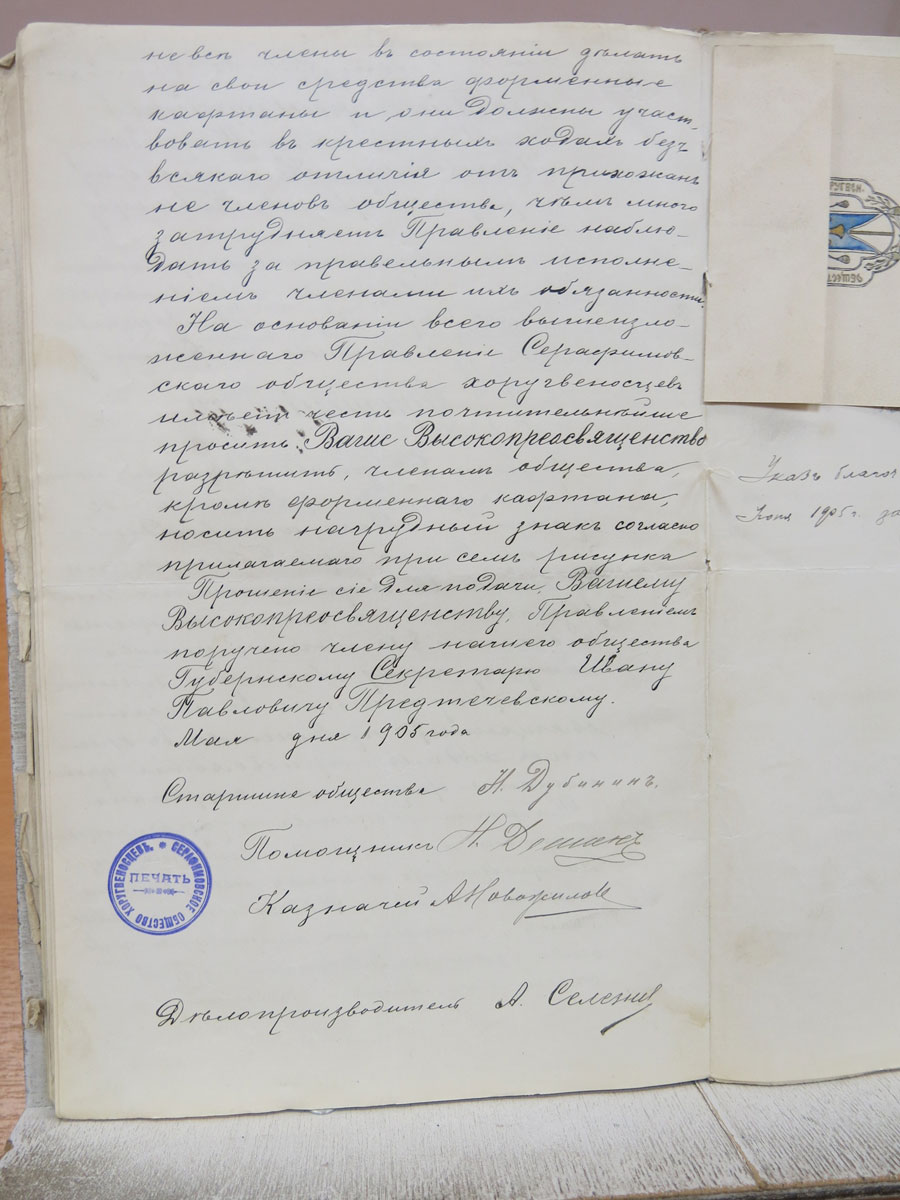 не всѣ члены въ состояніи дѣлать
на свои средства форменные
кафтаны и они должны участ-
вовать въ крестныхъ ходахъ безъ
всякаго отличія отъ прихожанъ
не членовъ общества, чѣмъ много
затрудняетъ Правленіе наблю-
дать за правельнымъ исполне-
ніемъ членами ихъ обязанности.
На основаніи всего вышеизло-
женнаго Правленіе Серафимов-
скаго общества хоругвеносцевъ
имѣетъ честь почтительнѣйше
просить Ваше Высокопреосвященство
разрѣшить, членамъ общества,
кромѣ форменнаго кафтана,
носить нагрудный знакъ согласно
прилагаемаго при семъ рисунка
Прошеніе сіе для подачи, Вашему
Высокопреосвященству, Правленіемъ
поручено члену нашего общества
Губернскому Секретарю Ивану
Павловичу Предтечевскому.
Мая дня 1905 года
Старшине общества Н. Дубининъ.
Помощникъ Н.
Казначей А Новожилов
Дѣлопроизводитель А.
СЕРАФИМОВСКОЕ ОБЩЕСТВО ХОРУГВЕНОСЦЕВЪ.
ПЕЧАТЬ
Указъ благоч
1905 г. за
ОБЩЕСТ